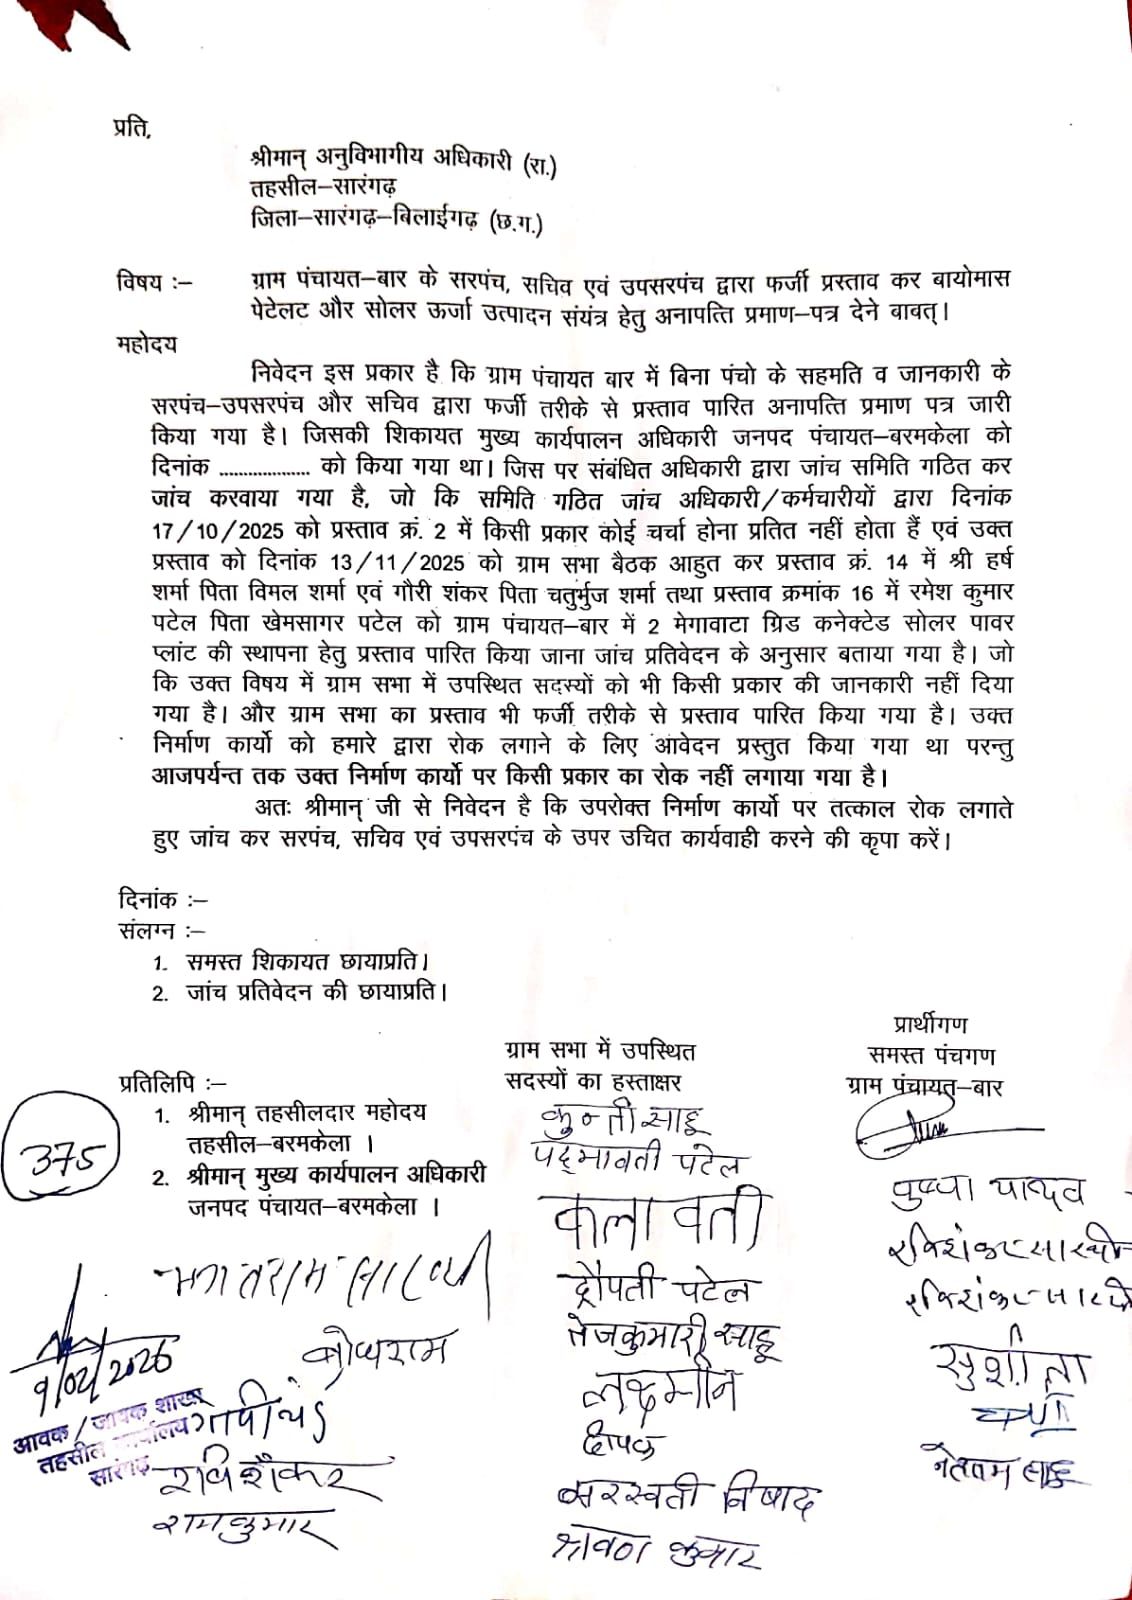 प्रति,
श्रीमान् अनुविभागीय अधिकारी (रा.)
तहसील–सारंगढ़
जिला–सारंगढ़–बिलाईगढ़ (छ.ग.)
विषय :– ग्राम पंचायत–बार के सरपंच, सचिव एवं उपसरपंच द्वारा फर्जी प्रस्ताव कर बायोमास
पेटेलट और सोलर ऊर्जा उत्पादन संयंत्र हेतु अनापत्ति प्रमाण–पत्र देने बावत्।
महोदय
निवेदन इस प्रकार है कि ग्राम पंचायत बार में बिना पंचो के सहमति व जानकारी के
सरपंच–उपसरपंच और सचिव द्वारा फर्जी तरीके से प्रस्ताव पारित अनापत्ति प्रमाण पत्र जारी
किया गया है। जिसकी शिकायत मुख्य कार्यपालन अधिकारी जनपद पंचायत–बरमकेला को
दिनांक .................. को किया गया था। जिस पर संबंधित अधिकारी द्वारा जांच समिति गठित कर
जांच करवाया गया है, जो कि समिति गठित जांच अधिकारी/कर्मचारीयों द्वारा दिनांक
17/10/2025 को प्रस्ताव क्रं. 2 में किसी प्रकार कोई चर्चा होना प्रतित नहीं होता हैं एवं उक्त
प्रस्ताव को दिनांक 13/11/2025 को ग्राम सभा बैठक आहुत कर प्रस्ताव क्रं. 14 में श्री हर्ष
शर्मा पिता विमल शर्मा एवं गौरी शंकर पिता चतुर्भुज शर्मा तथा प्रस्ताव क्रमांक 16 में रमेश कुमार
पटेल पिता खेमसागर पटेल को ग्राम पंचायत–बार में 2 मेगावाटा ग्रिड कनेक्टेड सोलर पावर
प्लांट की स्थापना हेतु प्रस्ताव पारित किया जाना जांच प्रतिवेदन के अनुसार बताया गया है। जो
कि उक्त विषय में ग्राम सभा में उपस्थित सदस्यों को भी किसी प्रकार की जानकारी नहीं दिया
गया है। और ग्राम सभा का प्रस्ताव भी फर्जी तरीके से प्रस्ताव पारित किया गया है। उक्त
निर्माण कार्यो को हमारे द्वारा रोक लगाने के लिए आवेदन प्रस्तुत किया गया था परन्तु
आजपर्यन्त तक उक्त निर्माण कार्यो पर किसी प्रकार का रोक नहीं लगाया गया है।
अतः श्रीमान् जी से निवेदन है कि उपरोक्त निर्माण कार्यो पर तत्काल रोक लगाते
हुए जांच कर सरपंच, सचिव एवं उपसरपंच के उपर उचित कार्यवाही करने की कृपा करें।
दिनांक :–
संलग्न :–
1. समस्त शिकायत छायाप्रति।
2. जांच प्रतिवेदन की छायाप्रति।
प्रार्थीगण
समस्त पंचगण
ग्राम पंचायत–बार
ग्राम सभा में उपस्थित
सदस्यों का हस्ताक्षर
प्रतिलिपि :–
1. श्रीमान् तहसीलदार महोदय
तहसील–बरमकेला ।
2. श्रीमान् मुख्य कार्यपालन अधिकारी
जनपद पंचायत–बरमकेला ।
375
कुन्ती साहू
पद्मावती पटेल
कलावती
द्रौपती पटेल
तेजकुमारी साहू
लक्ष्मीन
दीपक
सरस्वती निषाद
श्रावण कुमार
पुष्पा यादव
रविशंकर सारथी
रविशंकर सारथी
सुशीला
बोधराम
रविशंकर
रामकुमार
9/02/2026
आवक / जावक शाखा
तहसील कार्यालय
सारंगढ़